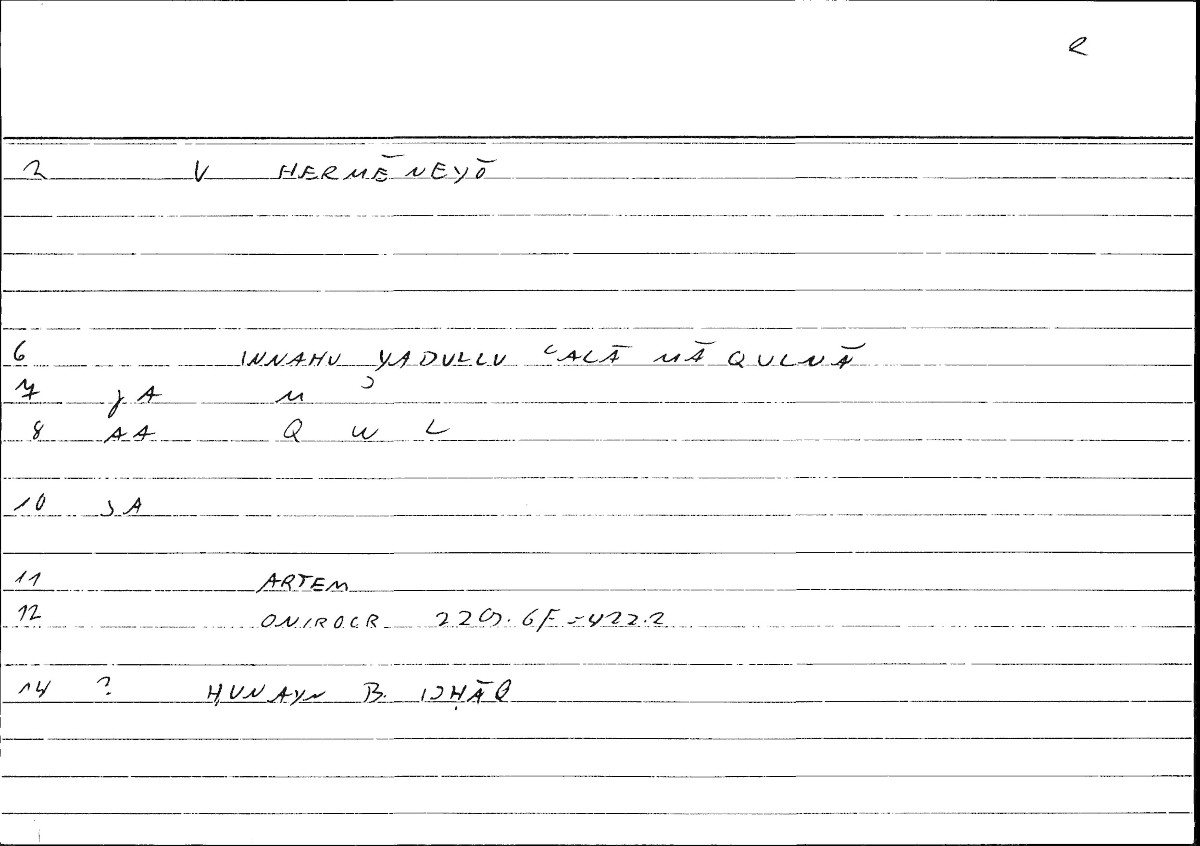 e
2 V HERMĒNEYŌ
6 INNAHU YADULLU ʿALĀ MĀ QULNĀ
7 jA M ʾ
8 AA Q W L
10 SA
11 ARTEM
12 ONIROCR 220.6F=422.2
14 ? ḤUNAYN B. ISḤĀQ